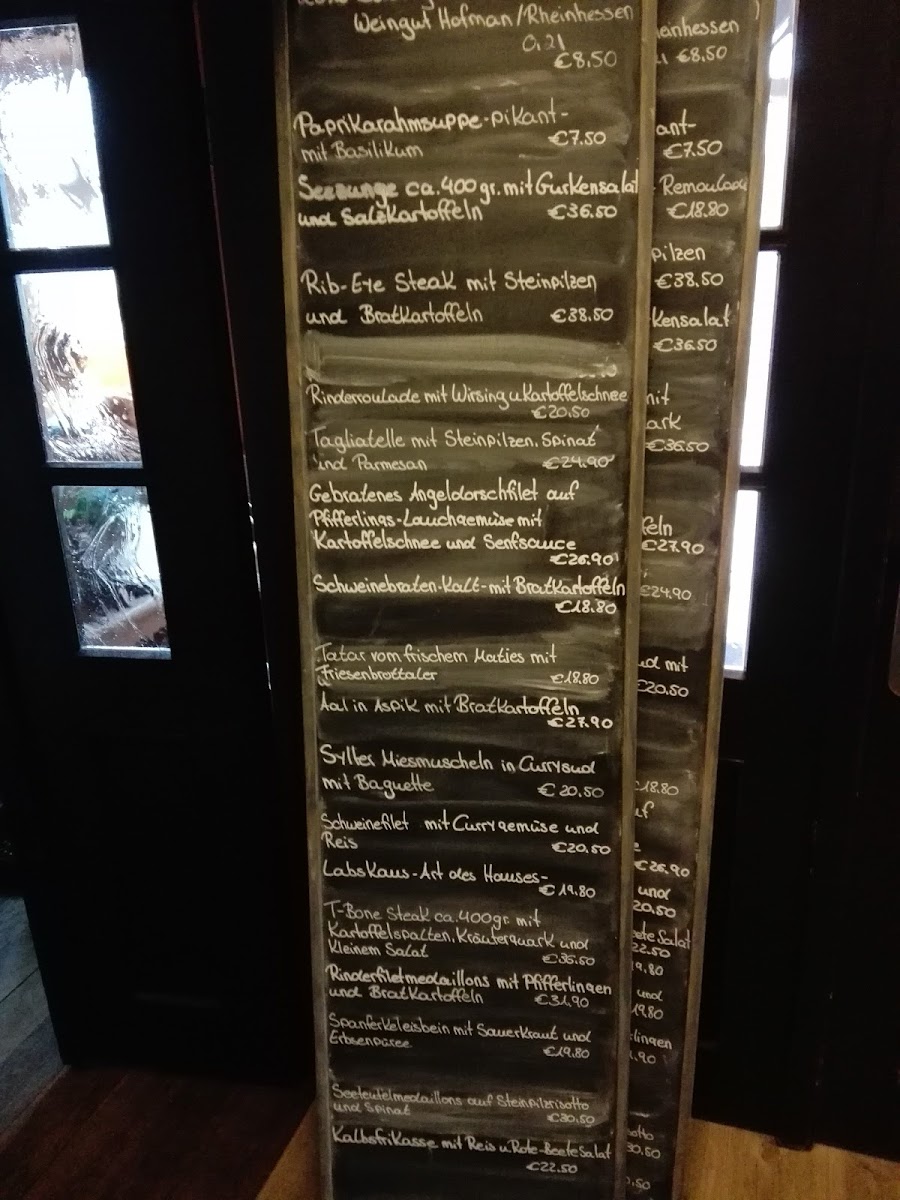 Weingut Hofman/Rheinhessen
0,2l
€8.50
Paprikarahmsuppe-pikant-
mit Basilikum €7.50
Seezunge ca.400gr. mit Gurkensalat
und Salzkartoffeln €36.50
Rib-Eye Steak mit Steinpilzen
und Bratkartoffeln €38.50
Rinderroulade mit Wirsing u Kartoffelschnee
€20.50
Tagliatelle mit Steinpilzen, Spinat
und Parmesan €24.90
Gebratenes Angeldorschfilet auf
Pfifferlings-Lauchgemüse mit
Kartoffelschnee und Senfsauce
€26.90
Schweinebraten-Kalt-mit Bratkartoffeln
€18.80
Tatar vom frischem Matjes mit
Friesenbrottaler €18.80
Aal in Aspik mit Bratkartoffeln
€27.90
Sylter Miesmuscheln in Currysud
mit Baguette €20.50
Schweinefilet mit Currygemüse und
Reis €20.50
Labskaus-Art des Hauses-
€19.80
T-Bone Steak ca.400gr. mit
Kartoffelspalten, Kräuterquark und
kleinem Salat €36.50
Rinderfiletmedaillons mit Pfifferlingen
und Bratkartoffeln €31.90
Spanferkeleisbein mit Sauerkraut und
Erbsenpüree €19.80
Seeteufelmedaillons auf Steinpilzrisotto
und Spinat €30.50
Kalbsfrikasse mit Reis u Rote-Beete Salat
€22.50
einhessen
€8.50
ant-
€7.50
Remoulade
€18.80
pilzen
€38.50
kensalat
€36.50
mit
ark
€36.50
feln
€27.90
€24.90
ud mit
€20.50
€18.80
uf
€26.90
und
20.50
eete Salat
22.50
19.80
und
19.80
lingen
1.90
sotto
30.50